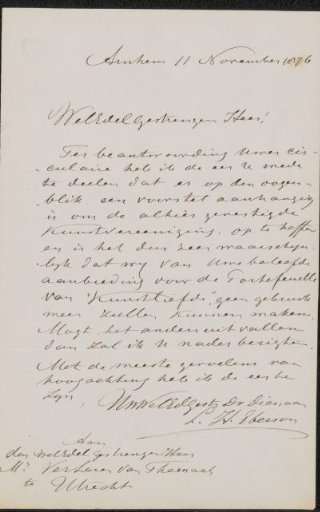 Arnhem 11 November 1876
WelEdelGestrengen Heer!
Ter beantwoording Uwer cir-
culaire heb ik de eer U mede
te deelen dat er op den oogen-
blik een voorstel aanhangig
is om de alhier gevestigde
Kunstvereeniging op te heffen
en is het dus zeer waarschijn-
lijk dat wij van Uw beleefde
aanbieding voor de Portefeuille
van "Kunstliefde" geen gebruik
meer zullen kunnen maken.
Mogt het anders uitvallen
dan zal ik U nader berigten.
Met de meeste gevoelens van
hoogachting heb ik de eer te
zijn
UwWelEdGestr Dr Dienaar
L. H. Eberson
Aan
den WelEdelGestrengen Heer
Mr Verloren van Themaat
te Utrecht